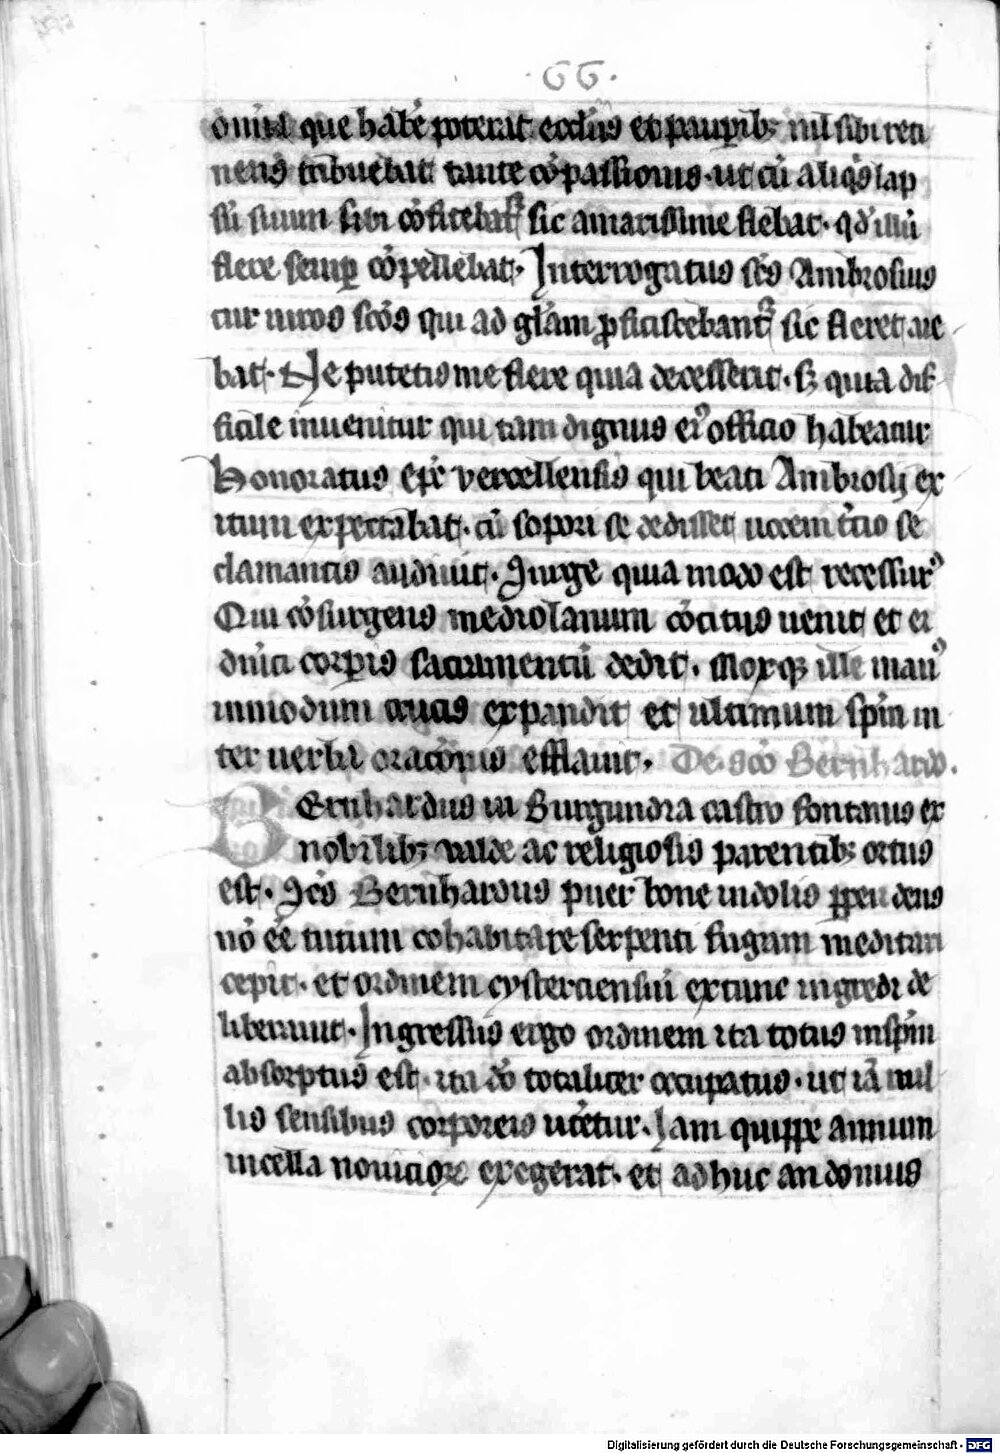 · 66 ·
om̄ia que hab̄e poterat eccl̄iis et paup̄ib; nil sibi reti
nens tribuebat tante cō̄passionis · ut cū aliq̄s lap
sū suum sibi cō̄fitebat᷑ sic amarissime flebat · qd̓ illū
flere semp̲ cō̄pellebat · Interrogatus sc̄s Ambrosius
cur viros sc̄os qui ad gl̄am ꝓficiscebant᷑ sic fleret aie
bat · Ne putetis me flere quia decesserit · sꝫ quia dif
ficile invenitur qui tam dignus eiꝰ officio habeatur
Honoratus ep̄c vercellensis qui beati Ambrosij ex
itum expectabat · cū sopori se dedisset uocem t̄cio se
clamantis audiuit · Surge quia modo est recessurꝰ
Qui cō̄surgens mediolanum cō̄citus uenit et ei
dn̄ici corꝑis sacramentū dedit · Moxqꝫ ille manꝰ
inmodum crucis expandit et ultimum sp̄m in
ter uerba orac̄onis efflauit · De sc̄o Bernhardo .
Bernhardus in Burgundia castro fontanis ex
nobilibꝫ valde ac religiosis parentibꝫ ortus
est · Sc̄s Bernhardus puer bone indolis ꝑpendens
nō ēē tutum cohabitare serpenti fugam meditari
cepit · et ordinem cysterciensiū extunc ingredi de
liberauit · Ingressus ergo ordinem ita totus insp̄m
absorptus est · ita dō totaliter occupatus · ut iā nul
lis sensibus corporeis utetur · Iam quippe annum
incella nouicioꝝ exegerat · et adhuc an domus
Digitalisierung gefördert durch die Deutsche Forschungsgemeinschaft - DFG